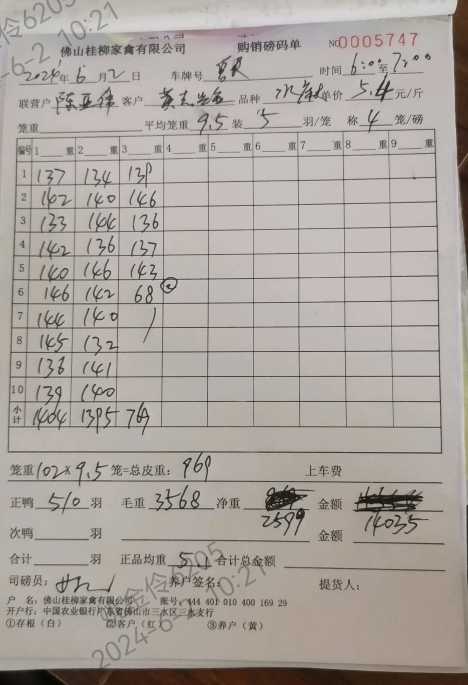 佛山桂柳家禽有限公司 购销磅码单 NO 0005747
2024年6月2日 车牌号 时间 6:00至7:00
联营户 客户 品种 单价 5.4 元/斤
笼重 平均笼重 9.5 装 5 羽/笼 称 4 笼/磅
编号 1 重 2 重 3 重 4 重 5 重 6 重 7 重 8 重 9 重
1 137 134 139
2 142 140 146
3 133 144 136
4 142 136 137
5 140 146 143
6 146 142 68 ②
7 144 140
8 145 132
9 136 141
10 139 140
小计 1404 1395 769
笼重 102×9.5 笼=总皮重: 969 上车费
正鸭 510 羽 毛重 3568 净重 2599 金额 14035
次鸭 羽 金额
合计 羽 正品均重 5.1 合计总金额
司磅员: 养户签名: 提货人:
户 名: 佛山桂柳家禽有限公司 账号: 444 401 010 400 169 29
开户行: 中国农业银行广东省佛山市三水区三水支行
①存根(白) ②客户(红) ③养户(黄)
2024-6-2 10:21